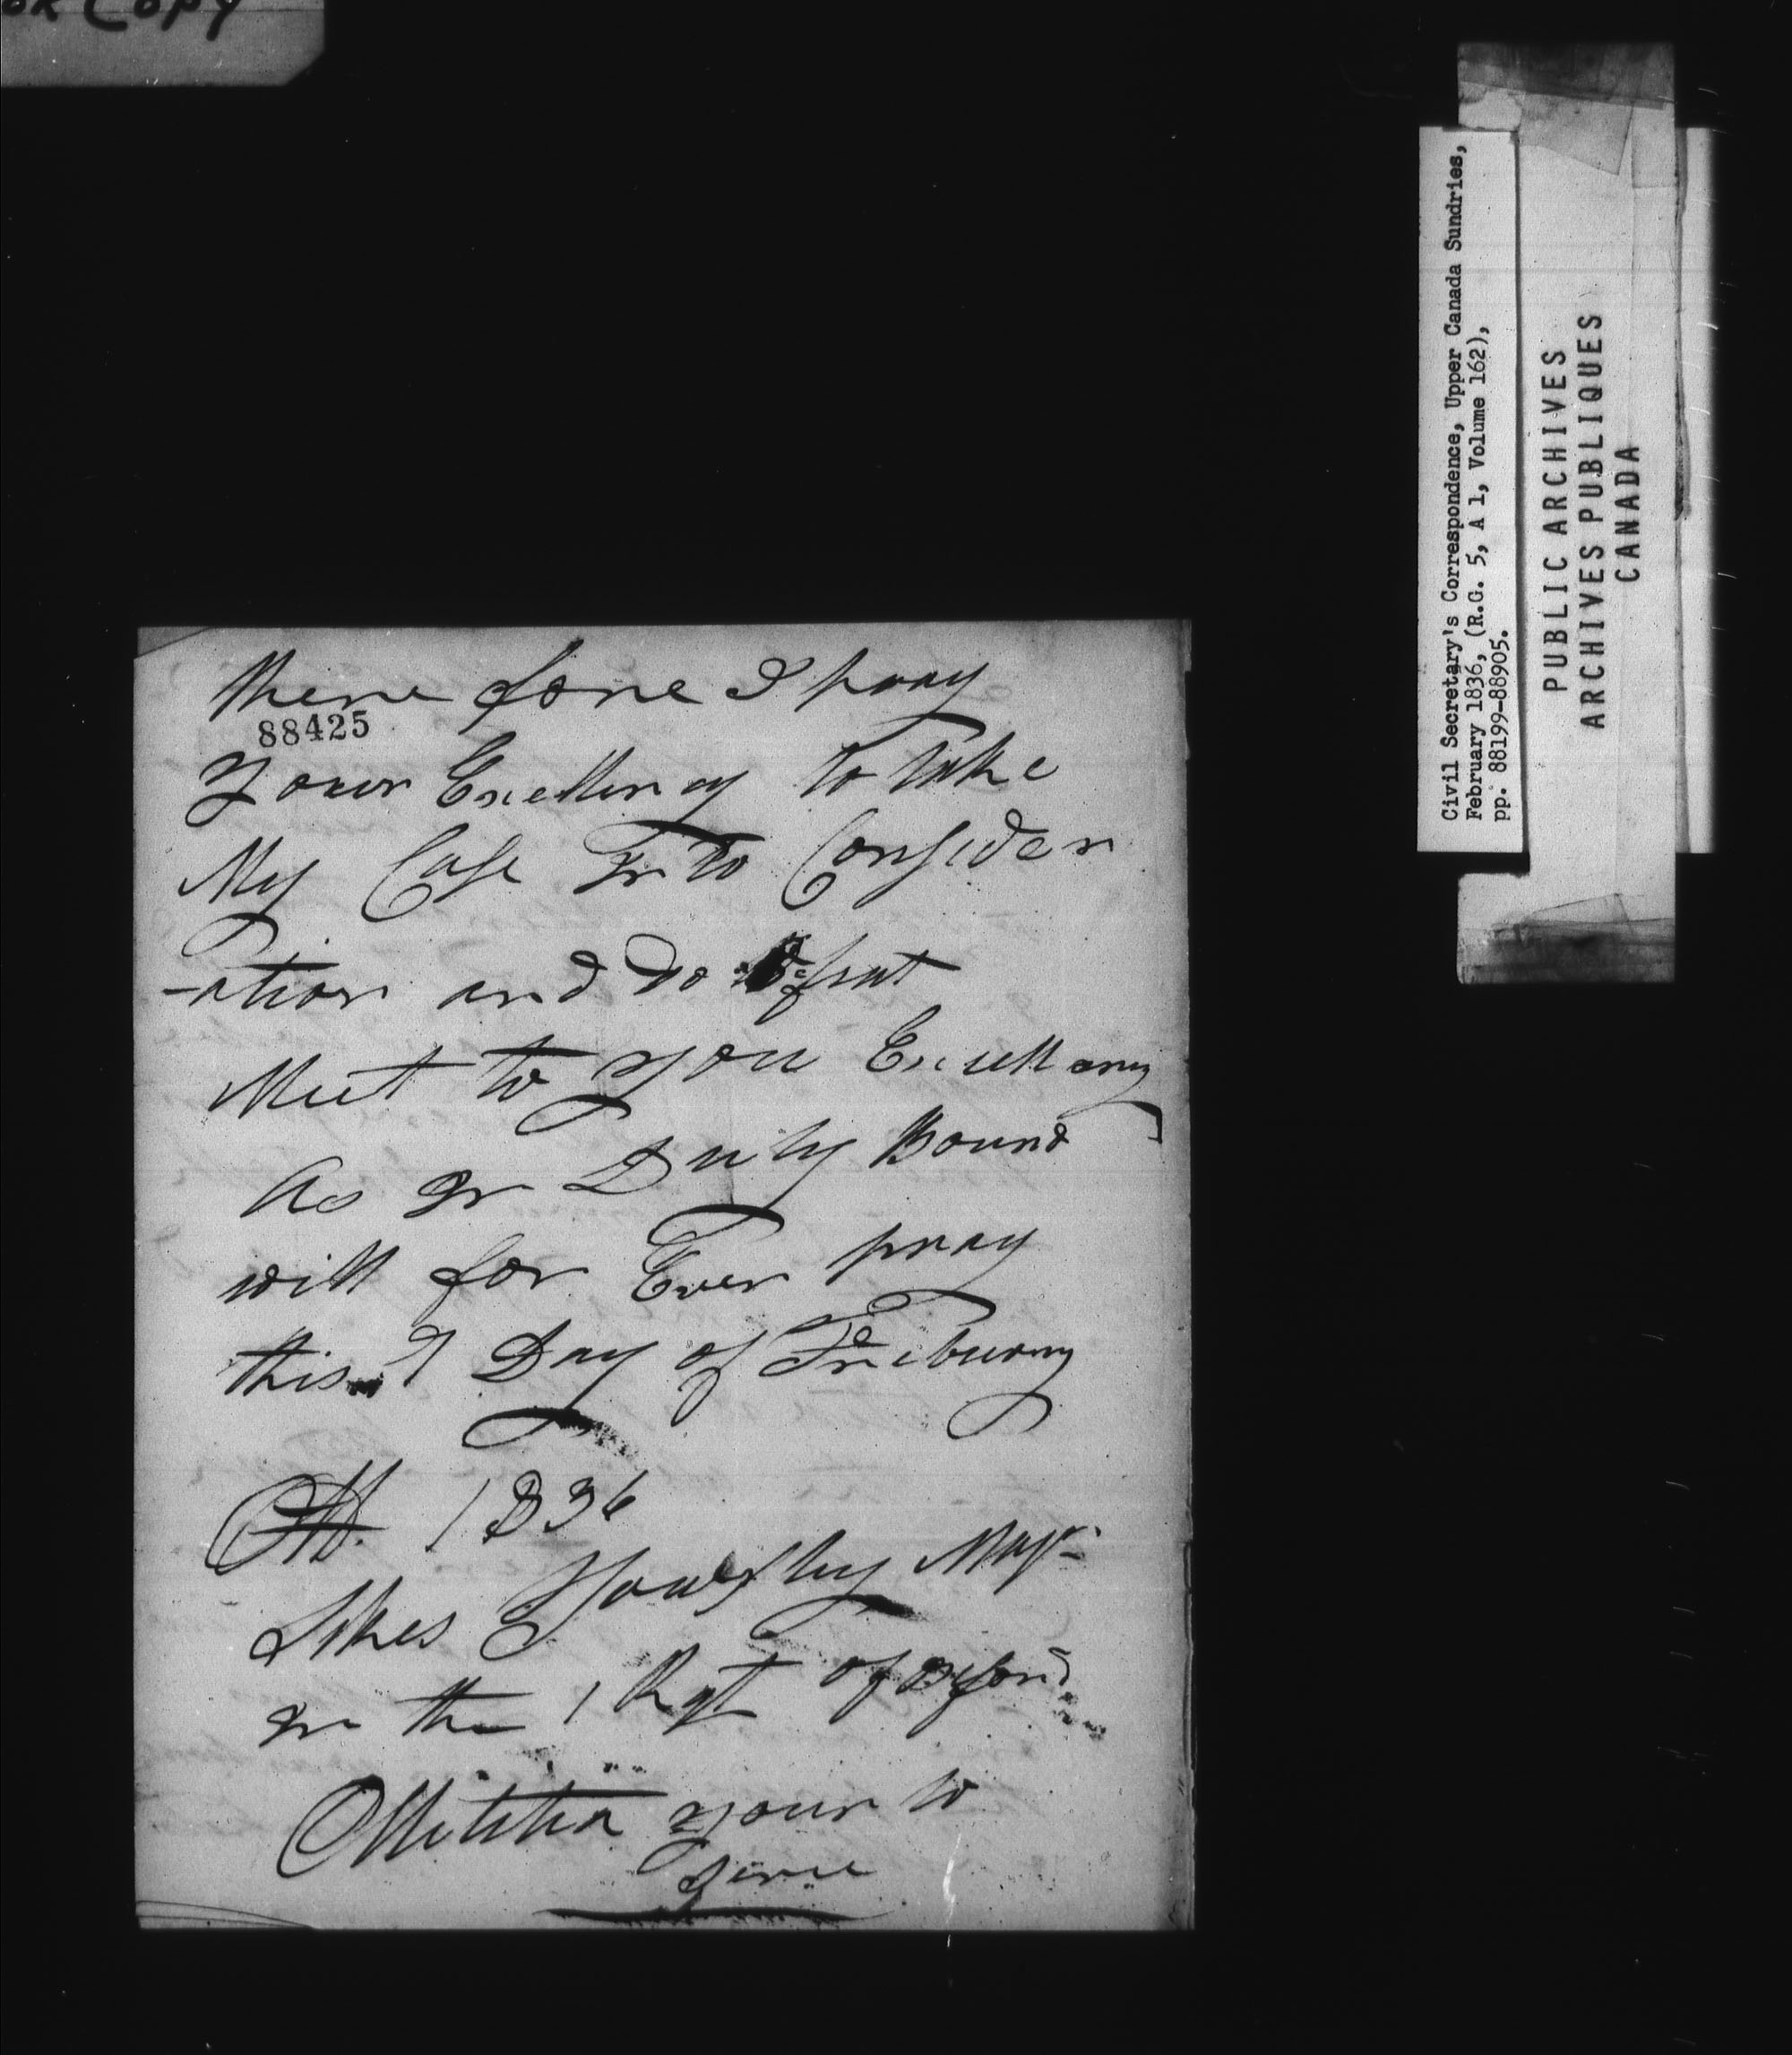 Copy
there fore I pray
88425
your Excellency to take
My Case In to Consider
-ation and do
Meet to you Excellency
As In Duty Bound
will for Ever pray
this 7 Day of Februery
AD. 1836
Sikes Maj.
In the 1 Rgt of Oxford
Militia your to
Serve
Civil Secretary's Correspondence, Upper Canada Sundries,
February 1836, (R.G. 5, A 1, Volume 162),
pp. 88199-88905.
PUBLIC ARCHIVES
ARCHIVES PUBLIQUES
CANADA